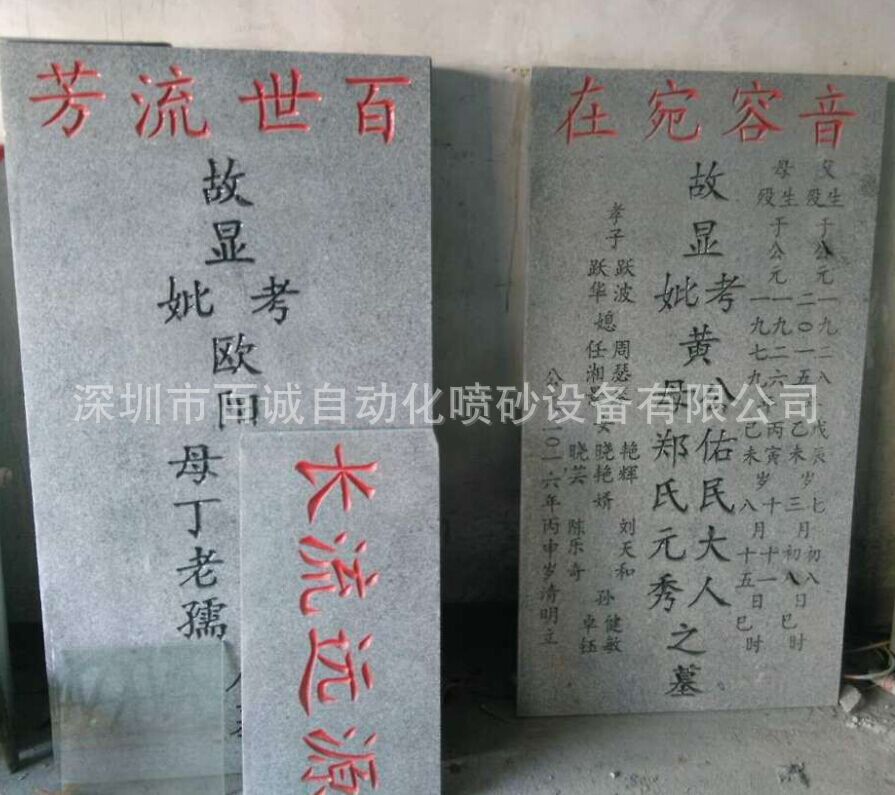 百世流芳
故显
考妣
欧阳
母丁老孺
源远流长
音容宛在
父生
殁
于公元
一九二八
戊辰
七月初八日
二〇一五
乙未岁三月初八日
巳时
母生
殁
于公元
一九二六
丙寅岁十月十一日
一九七九
己未
八月十五
巳时
故显
考妣
黄
公佑民大人
母郑氏元秀
之墓
孝子
跃波
跃华
媳
周瑟
任湘
女
艳辉
晓艳
晓芸
婿
刘天和
陈乐奇
孙
健敏
卓钰
公
二〇一六年丙申岁清明立
深圳市百诚自动化喷砂设备有限公司